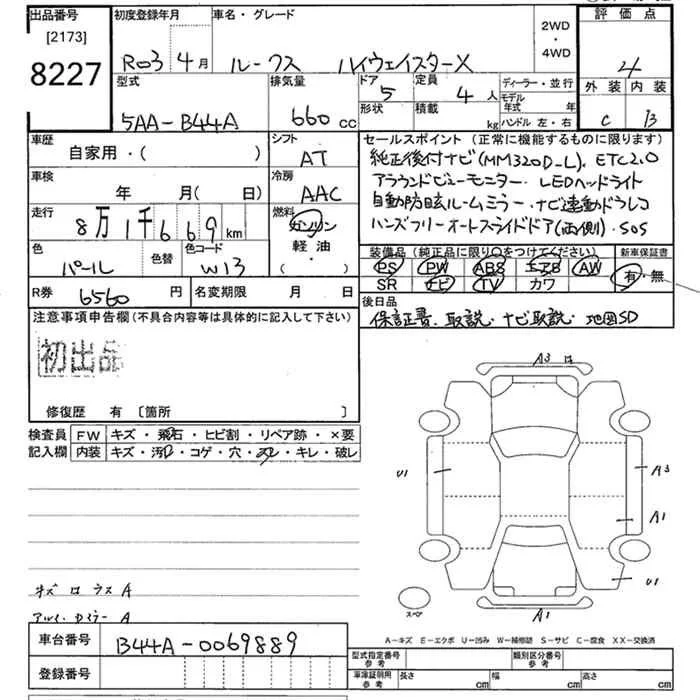 出品番号
[2173]
8227
初度登録年月
R03 4月
車名・グレード
ルークス ハイウェイスターX
2WD
・
4WD
評価点
4
外装 内装
C B
型式
5AA-B44A
排気量
660 cc
ドア
5
定員
4 人
形状
積載
kg
ディーラー・並行
モデル年式 年
ハンドル 左・右
車歴
自家用・( )
シフト
AT
車検
年 月( 日)
冷房
AAC
走行
8万1千669 km
燃料
ガソリン
軽油・
( )
色
パール
色替
色コード
W13
R券
6560 円
名変期限 月 日
セールスポイント (正常に機能するものに限ります)
純正後付ナビ(MM320D-L)、ETC2.0
アラウンドビューモニター・LEDヘッドライト
自動防眩ルームミラー・ナビ連動ドラレコ
ハンズフリーオートスライドドア(両側)・SOS
装備品(純正品に限り○をつけてください)
新車保証書
PS PW ABS エアB AW
SR ナビ TV カワ
有・無
後日品
保証書、取説、ナビ取説、地図SD
注意事項申告欄(不具合内容等は具体的に記入して下さい)
初出品
修復歴 有 〔箇所 〕
検査員
記入欄
FW キズ・飛石・ヒビ割・リペア跡・×要
内装 キズ・汚レ・コゲ・穴・スレ・キレ・破レ
A3
U1
A3
A1
U1
A1
スペア
A-キズ E-エクボ U-凹み W-補修跡 S-サビ C-腐食 XX-交換済
車台番号
B44A-0069889
登録番号
型式指定番号
参考
類別区分番号
参考
車庫証明用
参考
長さ cm
幅 cm
高さ cm